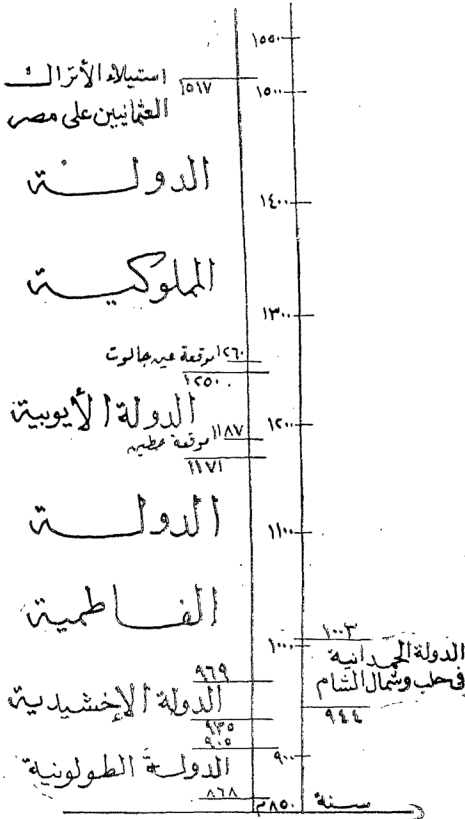 ١٥٥٠
استيلاء الأتراك
١٥١٧
١٥٠٠
العثمانيين على مصر
الدولة
١٤٠٠
المملوكية
١٣٠٠
١٢٦٠ موقعة عين جالوت
١٢٥٠
الدولة الأيوبية
١٢٠٠
١١٨٧ موقعة حطين
١١٧١
الدولة
١١٠٠
الفاطمية
١٠٠٣
١٠٠٠
الدولة الحمدانية
في حلب وشمال الشام
٩٦٩
الدولة الإخشيدية
٩٤٤
٩٣٥
٩٠٥
٩٠٠
الدولة الطولونية
٨٦٨
سنة ٨٥٠م